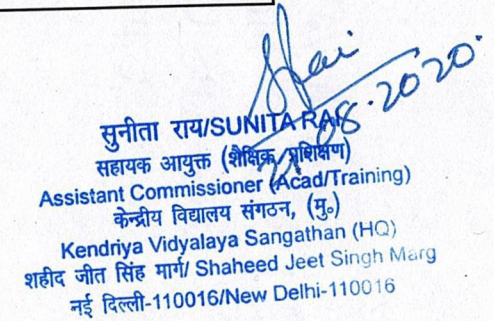 सुनीता राय/SUNITA RAI
08.2020.
सहायक आयुक्त (शैक्षिक/प्रशिक्षण)
Assistant Commissioner (Acad/Training)
केन्द्रीय विद्यालय संगठन, (मु०)
Kendriya Vidyalaya Sangathan (HQ)
शहीद जीत सिंह मार्ग/ Shaheed Jeet Singh Marg
नई दिल्ली-110016/New Delhi-110016